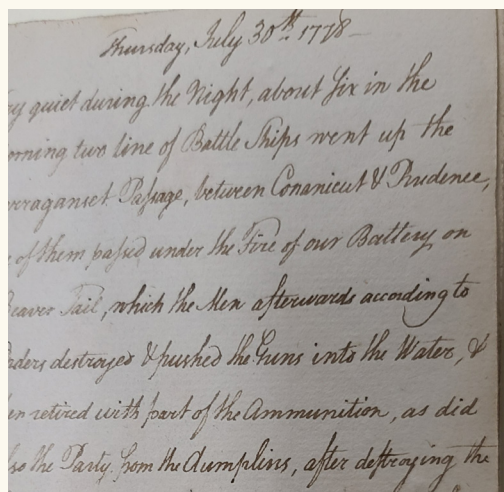 Thursday, July 30th. 1778 —
ry quiet during the Night, about Six in the
orning two line of Battle Ships went up the
arraganset Passage, between Conanicut & Prudence,
e of them passed under the Fire of our Battery on
Beaver Tail, which the Men afterwards according to
rders destroyed & pushed the Guns into the Water, &
hen retired with part of the Ammunition, as did
lso the Party from the Dumplins, after destroying the